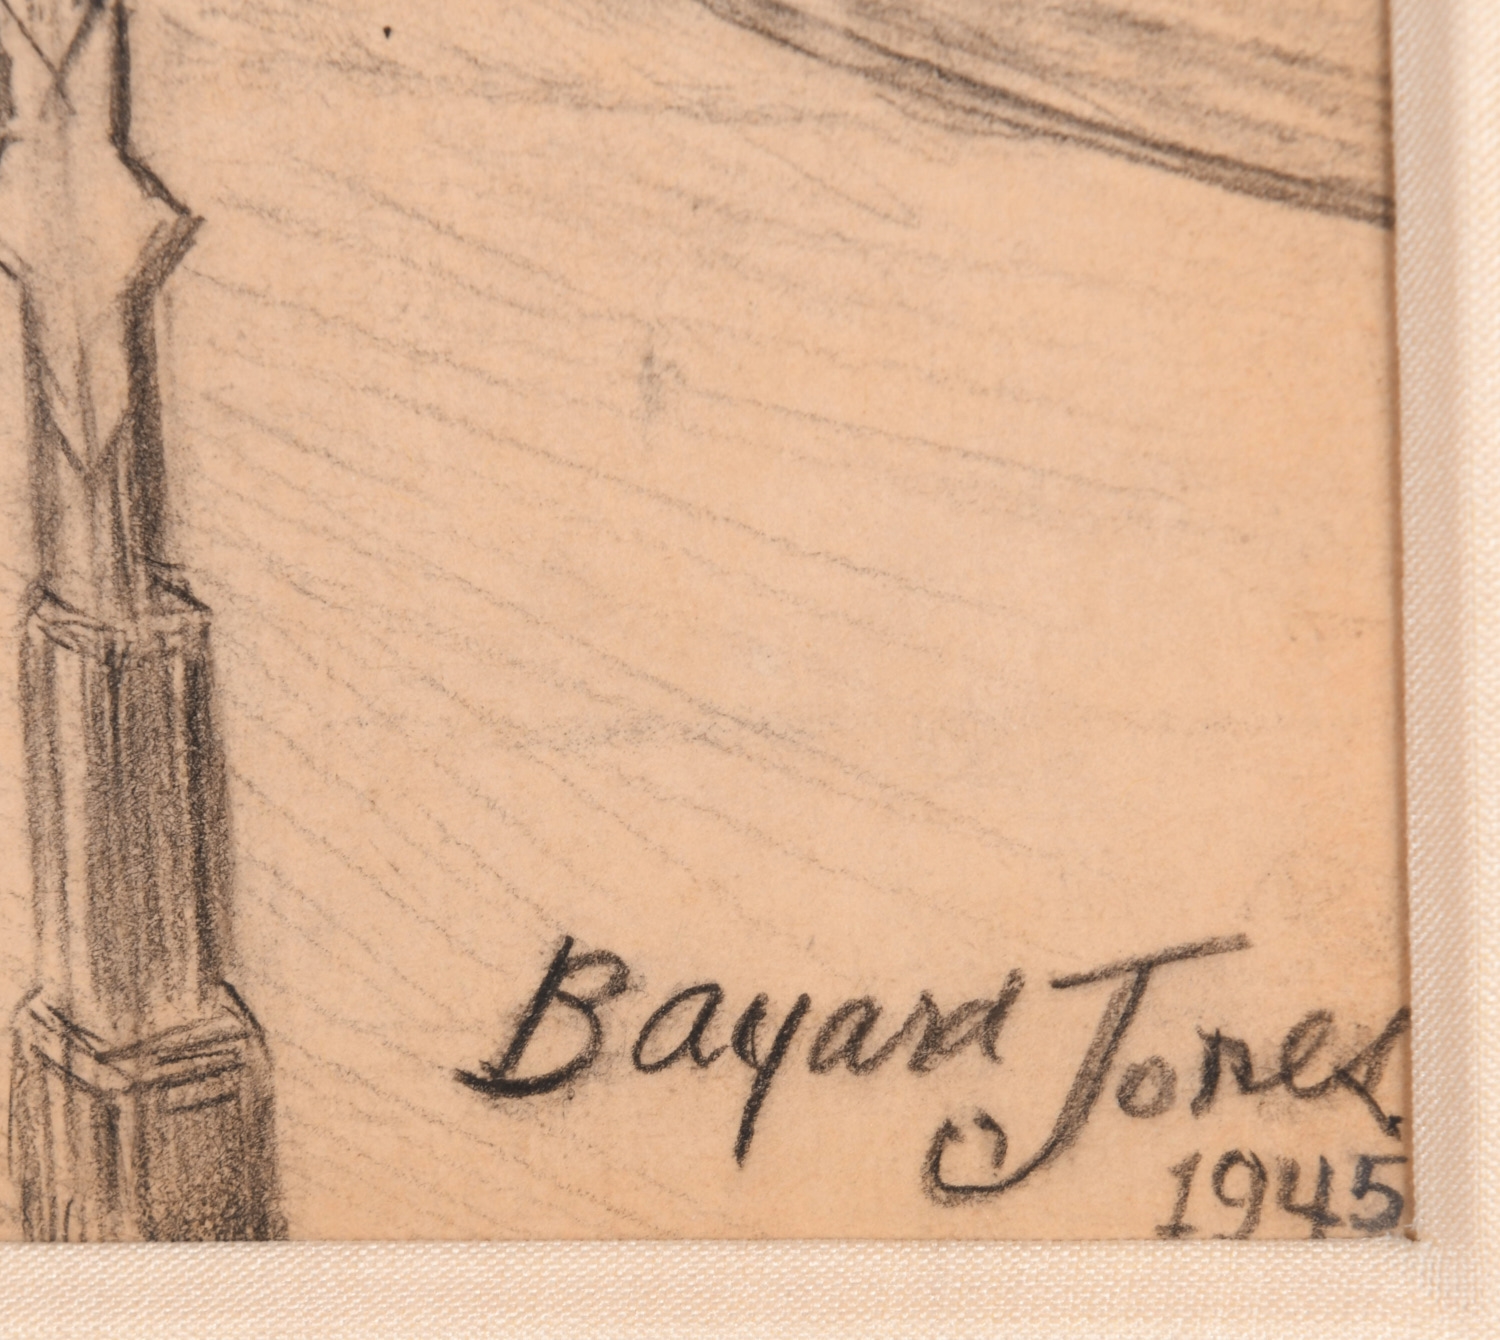 Bayard Jones
1945